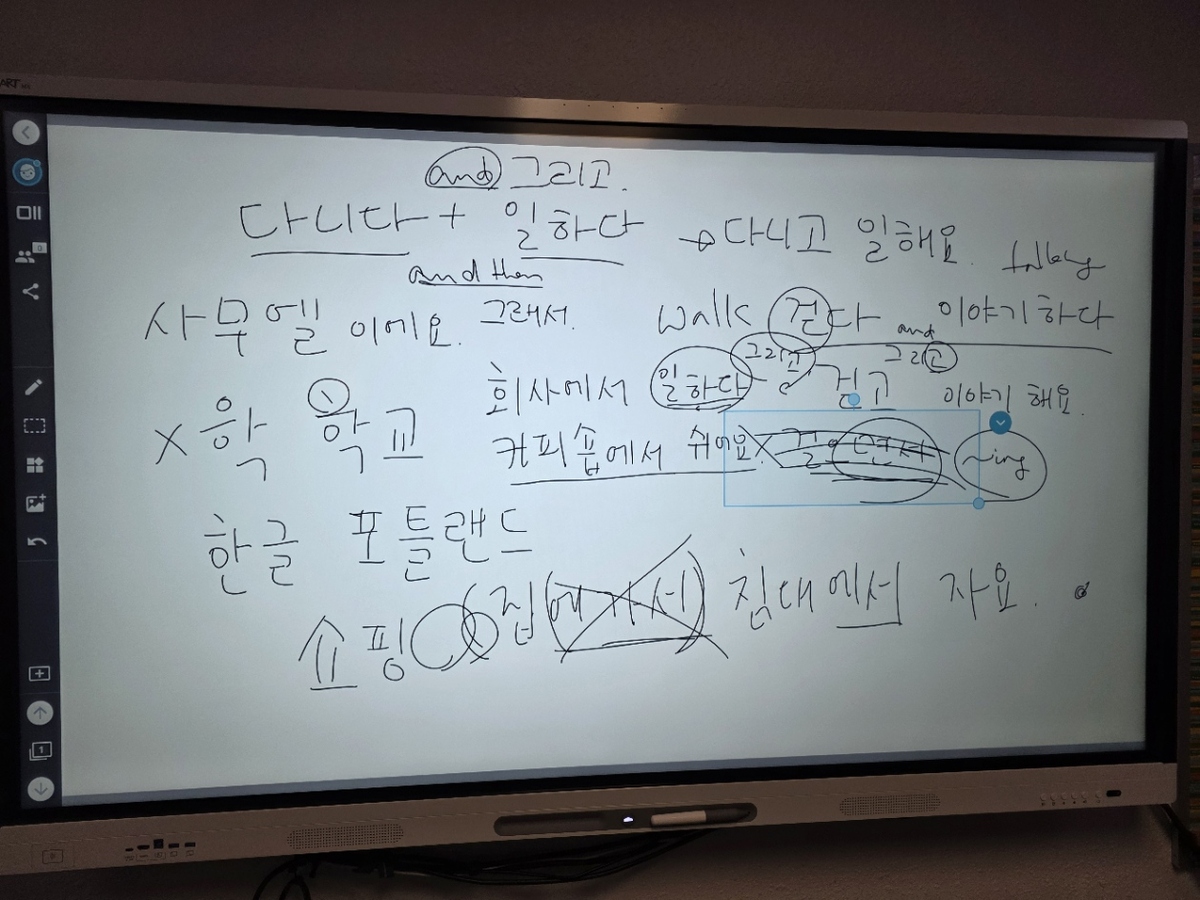 and 그리고.
다니다 + 일하다 → 다니고 일해요. talking
and then
사무엘 이에요. 그래서. walk 걷다 and 이야기하다
그리고 그리고
회사에서 일하다 걷고 이야기 해요.
x 학 학교
커피숍에서 쉬어요. ~ing
한글 포틀랜드
쇼핑 집(에가서) 침대에서 자요.